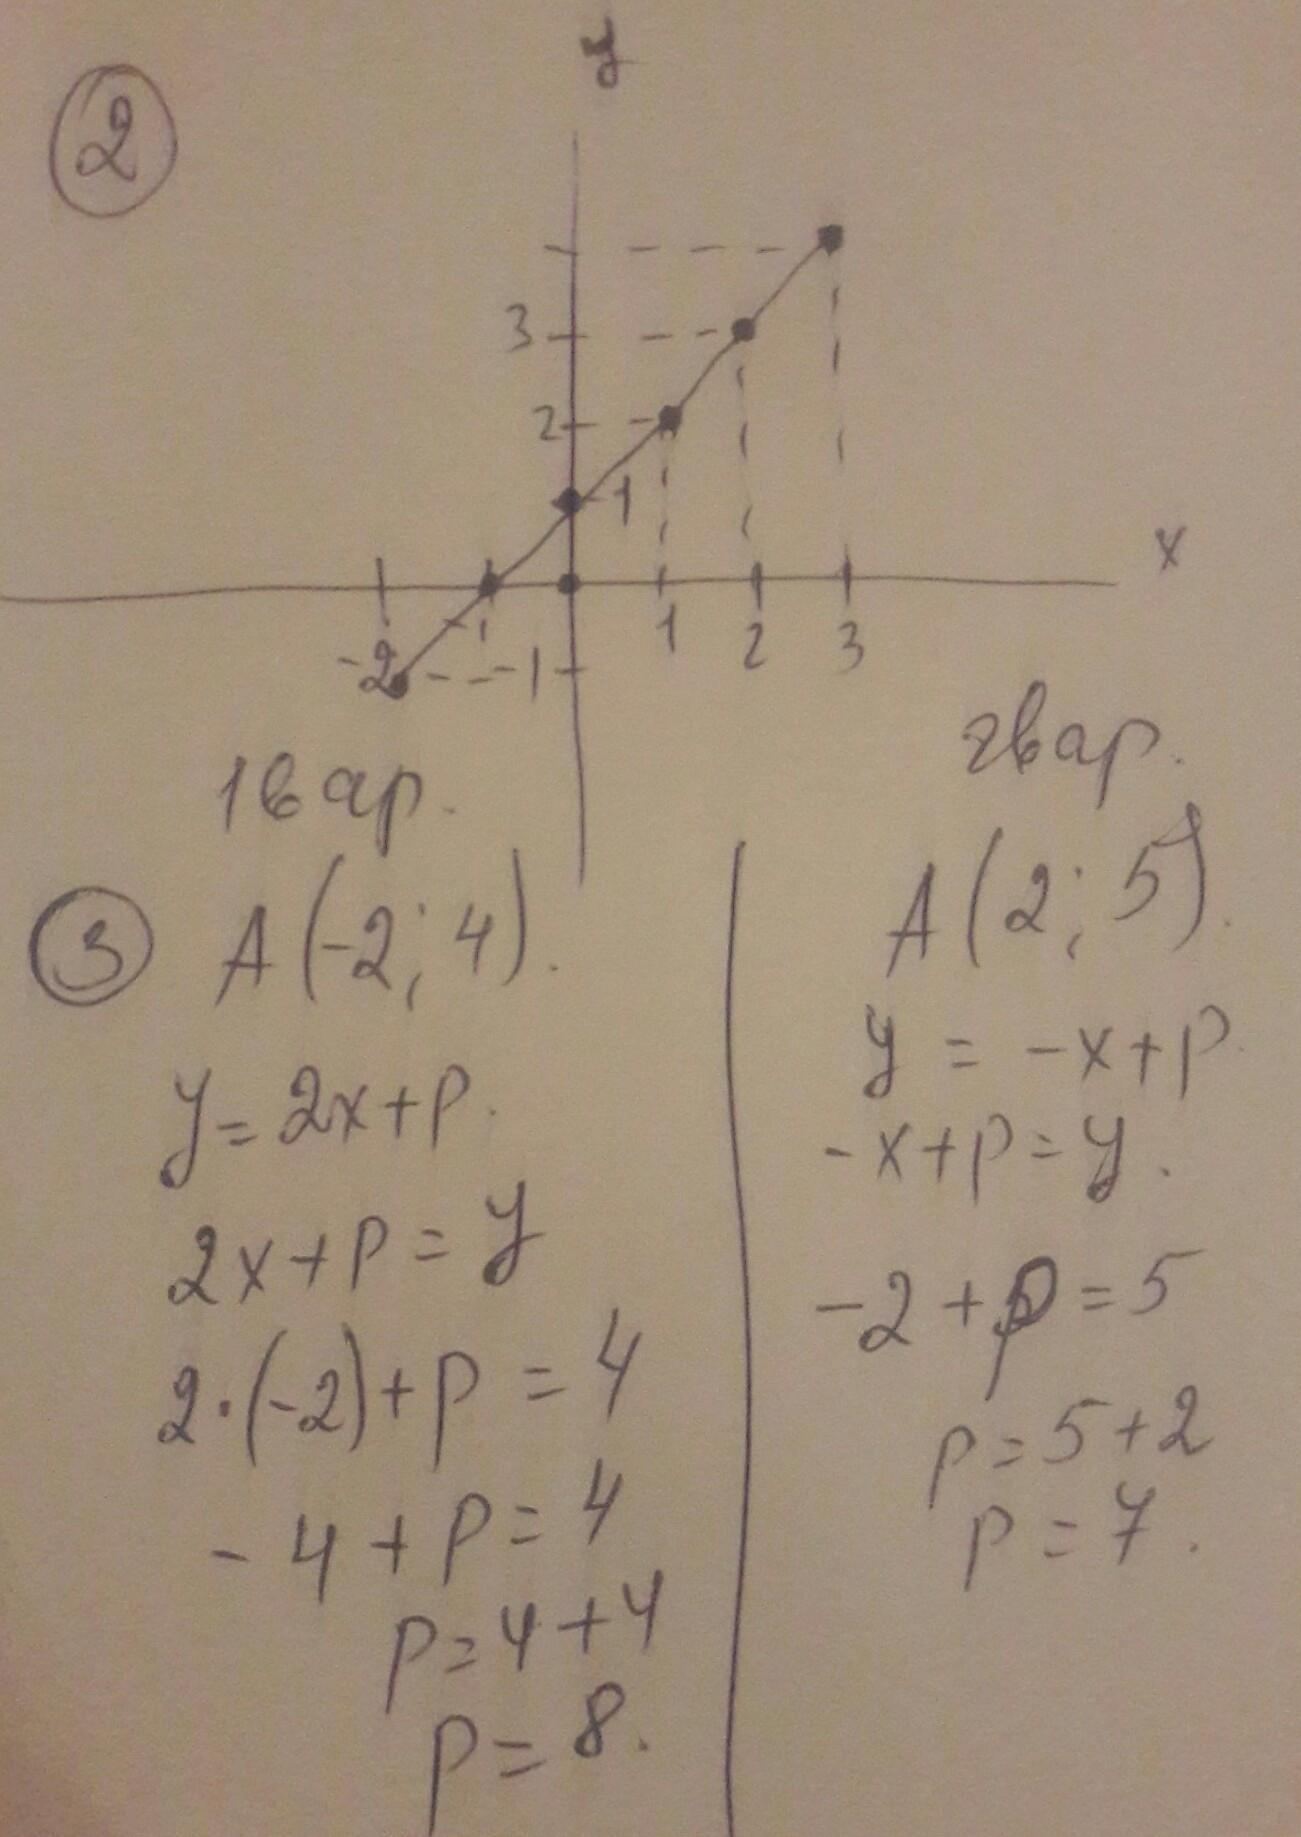 ②
y
3
2
1
x
-2 -1 -1 1 2 3
1 вар.
2 вар.
③ A(-2; 4).
y = 2x + p.
2x + p = y
2·(-2) + p = 4
- 4 + p = 4
p = 4 + 4
p = 8.
A(2; 5).
y = -x + p
-x + p = y.
-2 + p = 5
p = 5 + 2
p = 7.